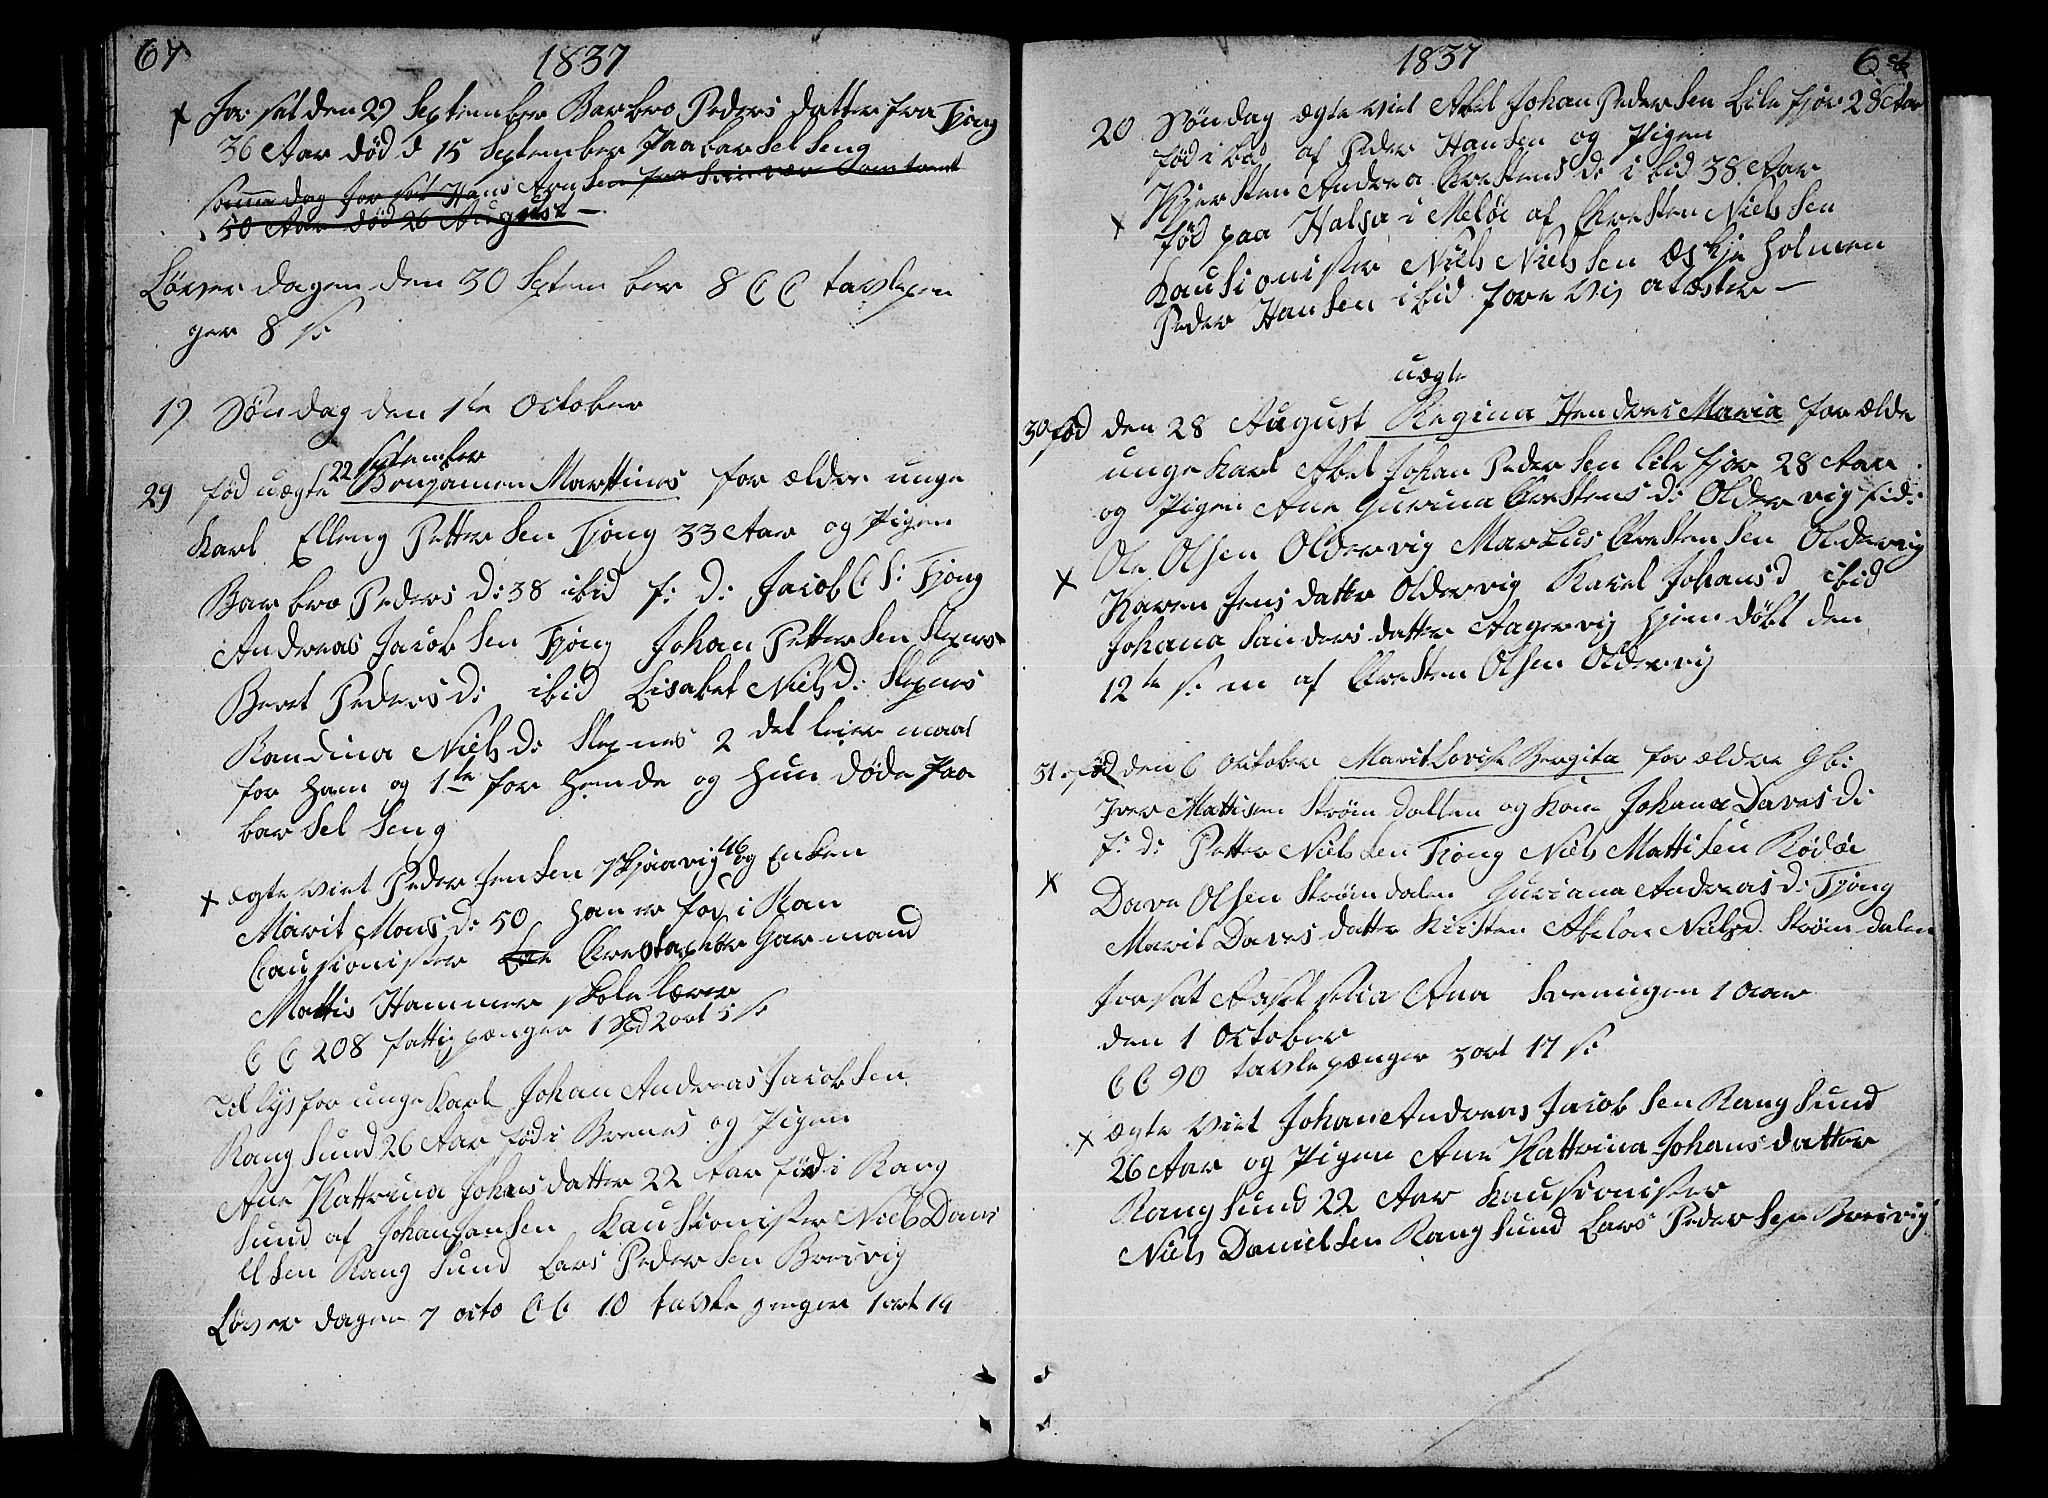 67
1837
x Jor sat den 29 September Barbro Peders datter fra Tjong
36 Aar død d 15 September Paa barsel seng
samme dag Jor sat Hans Arnsen fra
50 Aar død 26 August —
Løver dagen den 30 Septem ber 8 C C tavlepen
ger 8 s:
19 Søndag den 1te October
september
29 fød uægte 22 Benjamen Marttines for ældre unge
Karl Elleng Petter Sen Tjong 33 Aar og Pigen
Barbro Peders D: 38 ibid f: d: Jacob C S: Tjong
Andreas Jacob Sen Tjong Johan Petter Sen Slepnes
Beret Peders d: ibid Lisabet Niels d: Slepnes
Randina Niels d: Slepnes 2 det leier maal
for Ham og 1te for Hende og Hun døde Paa
bar Sel Seng
x Ægte viet Peder Jensen 46 og Enken
Marit Mons d: 50 Han er fød i Ran
Causionister Garmand
Mattis Hammer skole lærer
C C 208 fattig penger 1 Spd 2 ort 5 s:
Til lys for unge Karl Johan Andreas Jacob Sen
Rang Sund 26 Aar fød i Brenes og Pigen
Ane Kattrina Johans datter 22 Aar fød i Rang
Sund af Johan Jansen Kaustionister Niels Dani
el Sen Rang Sund Lars Peder Sen Breivig
Løver dagen 7 octo C C 10 tavle penger 1 ort 19
1837
20 Søndag ægte viet Abel Johan Peder Sen Lile fjor 28 Aar
fød i bd af Peder Hansen og Pigen
Kjersten Andrea Chrestens d: ibid 38 Aar
x fød paa Halsa i Meløe af Chresten Niels Sen
Kausionister Niels Niels Sen Æskje Holmen
Peder Hansen ibid fore Vis atæster —
uægte
30 fød den 28 August Regina Hendres Maria for ælde
unge Karl Abel Johan Peder Sen lile fjor 28 Aar
og Pigen Ane Gurina Chrestens d: Oldervig fd:
Ole Olsen Oldervig Markus Chresten Sen Oldervig
x Karen Jens datter Oldervig Karel Johans d ibid
Johana Sanders datter Aagervig Hjem døbt den
12te s: m af Chresten Olsen Oldervig
31 fød den 6 October Marit Lovise Bergita for ældre Gb:
Iver Mattisen Strøm dallen og Kone Johana Daves d:
f: d: Petter Niels Sen Tjong Niels Matti Sen Rødøe
x Dave Olsen Strømdalen Guriana Andreas d: Tjong
Marit Daves datter Kirsten Abelone Niels d. Strøm dalen
Jor sat Ana Sveningen 1 Aar
den 1 October
C C 90 tavle pænger 3 ort 17 s:
x Ægte viet Johan Andreas Jacob Sen Rang Sund
26 Aar og Pigen Ane Kattrina Johans datter
Rang Sund 22 Aar Kausionister
Niels Daniel Sen Rang Sund Lars Peder Sen Breivig